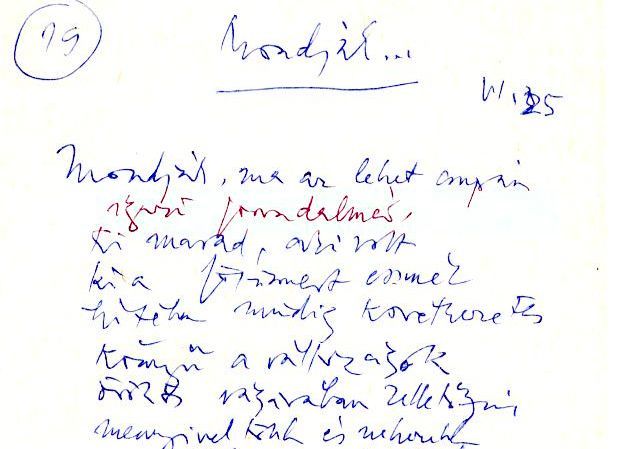 19
Mondják...
VI. 25
Mondják, ma az lehet csupán
igazi forradalmár,
ki marad, aki volt
ki a fölismert eszmék
hitében mindig következetes
Könnyű a változások
örökös vásárában
mennyivel több és nehezebb